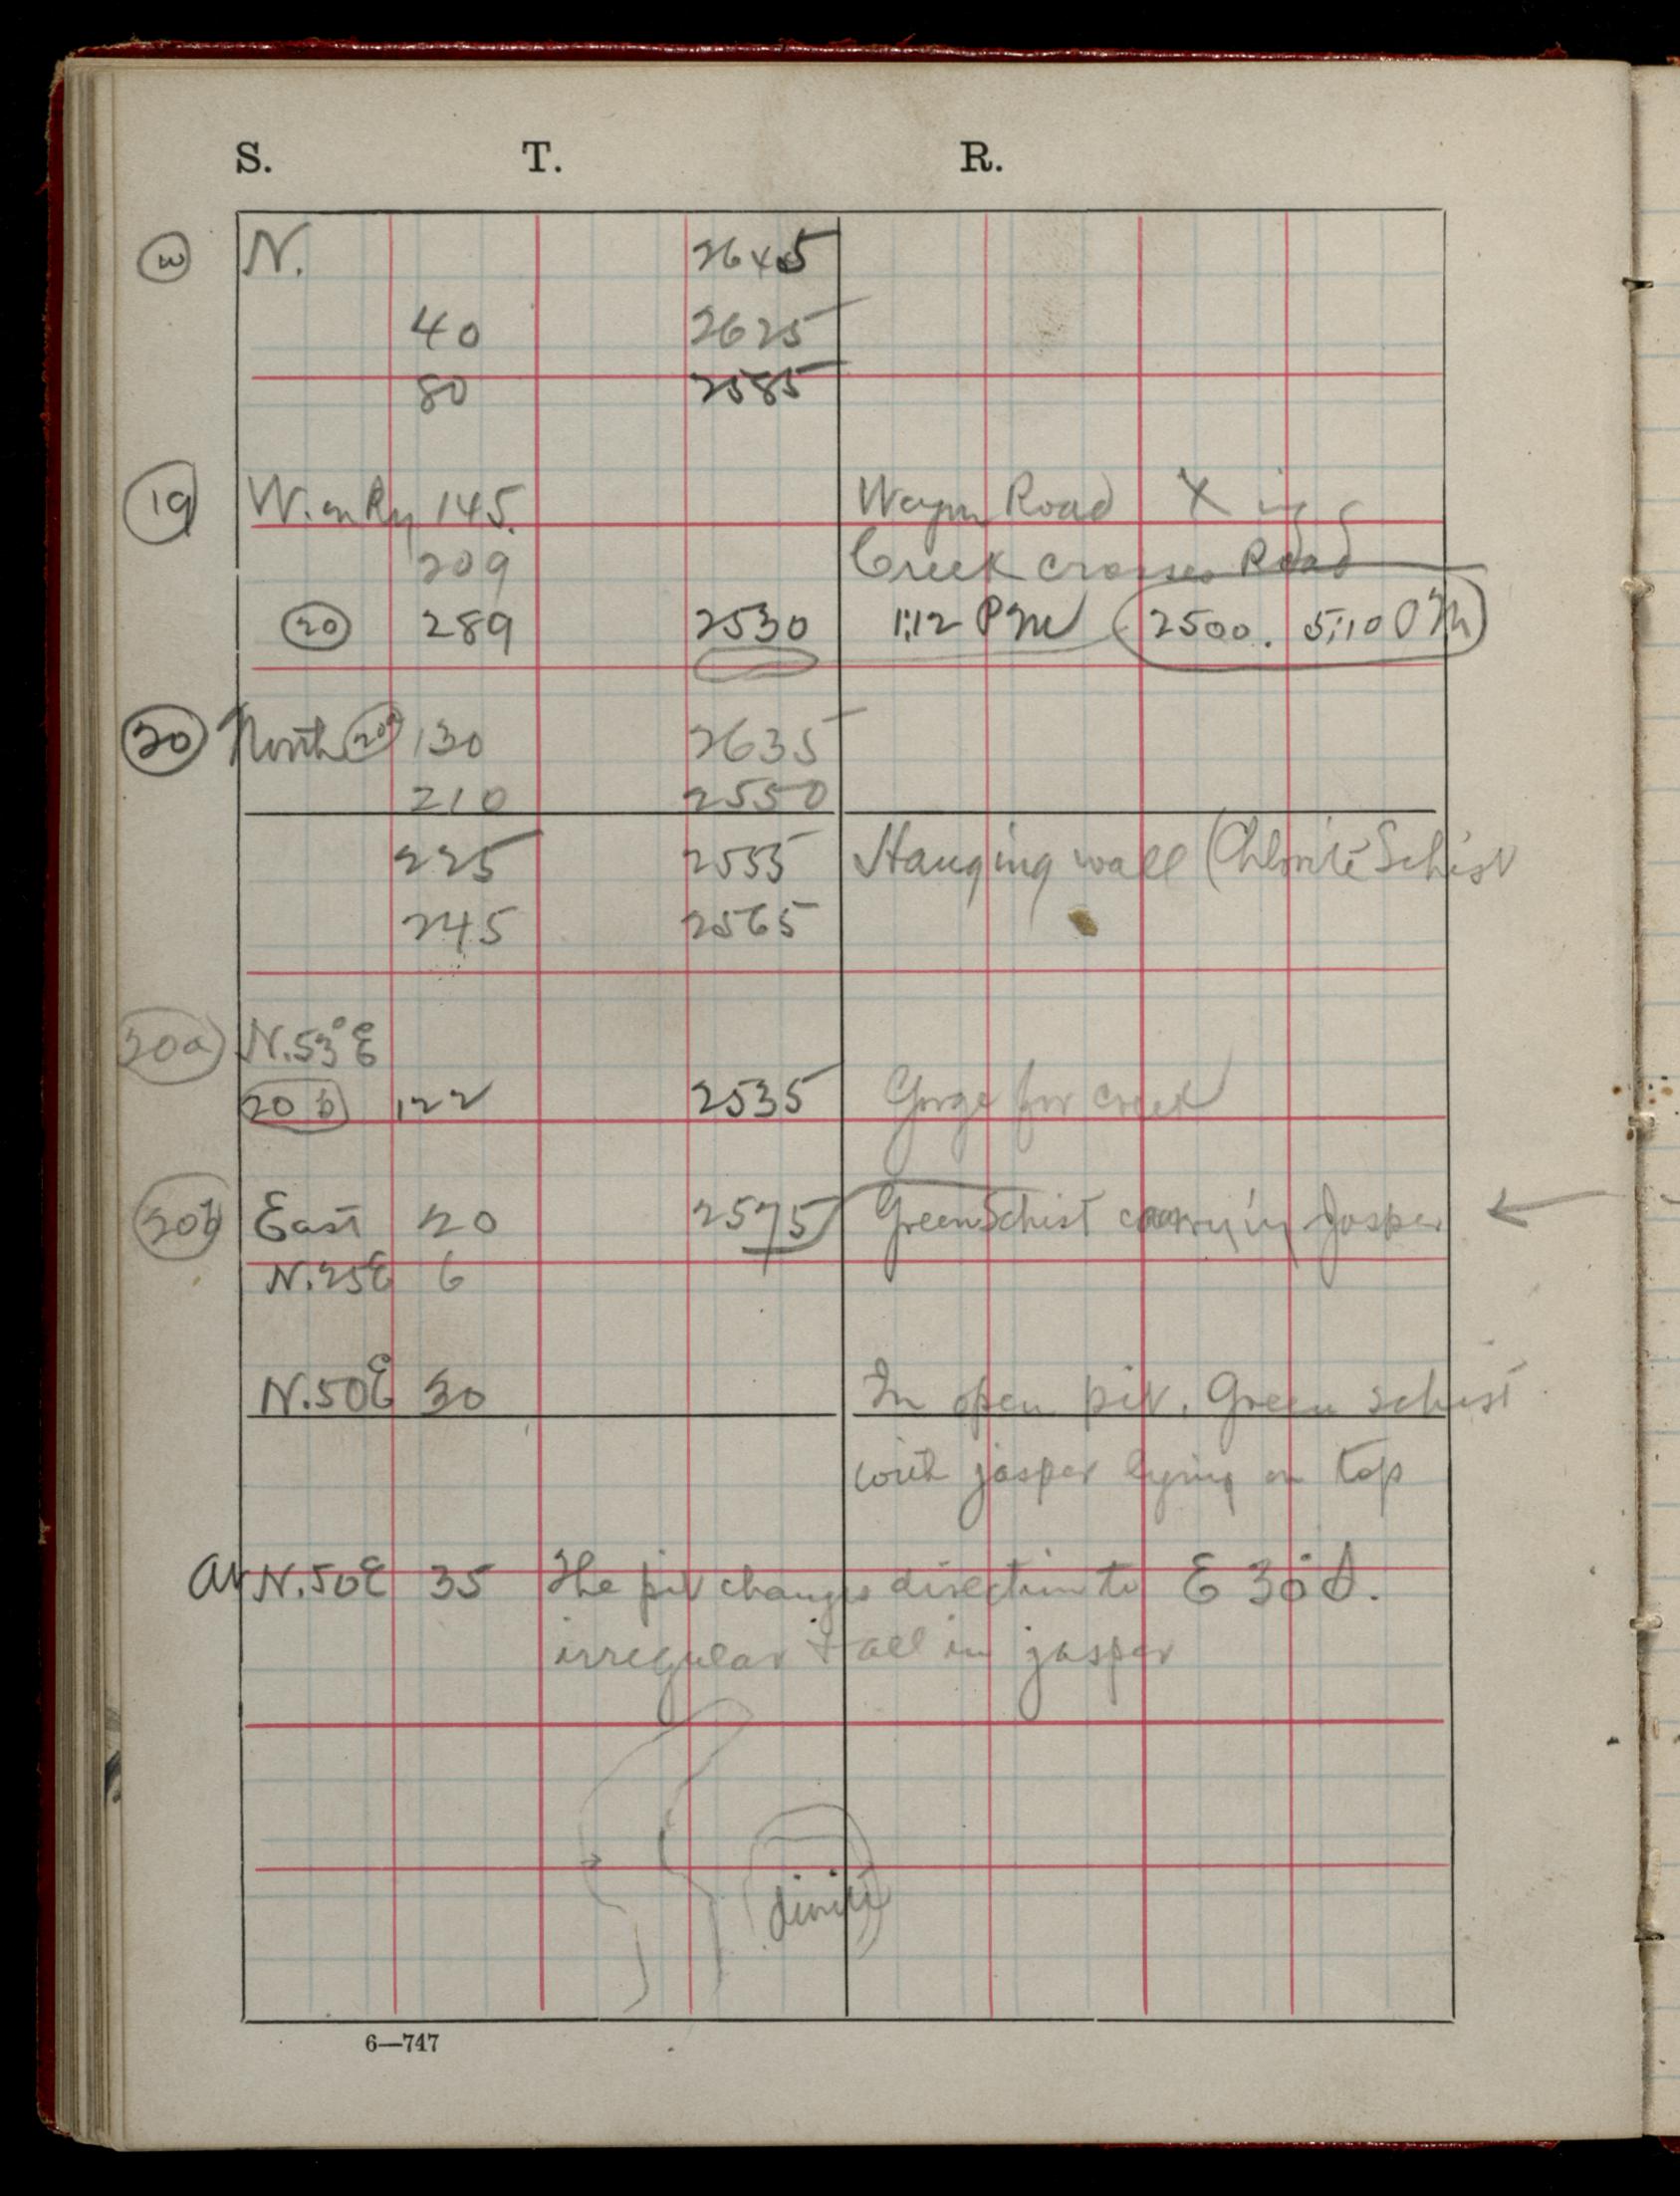 S. T. R.
w N. 2645
40 2625
80 2585
19 W. on Ry 145. Wagon Road X ing
209 Creek crosses Road
20 289 2530 1:12 PM 2500. 5:10 PM
20 North 20a 130 2635
210 2550
225 2555 Hanging wall (Chlorite Schist
245 2565
20a N.53°E
20b 122 2535 Gorge for creek
20b East 20 2575 Green Schist carrying Jasper
N.25E 6
N.50E 30 In open pit. Green schist
with jasper lying on top
At N.50E 35 The pit changes direction to E 30° S.
irregular & all in jasper
6—747